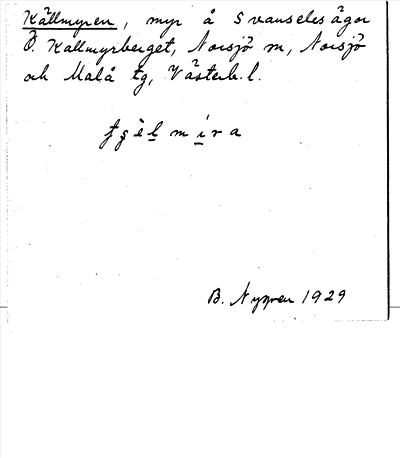 Källmyren, myr å Svanseles ägor
Ö. Källmyrberget, Norsjö sn, Norsjö
och Malå tg, Västerb. l.
B. Nygren 1929